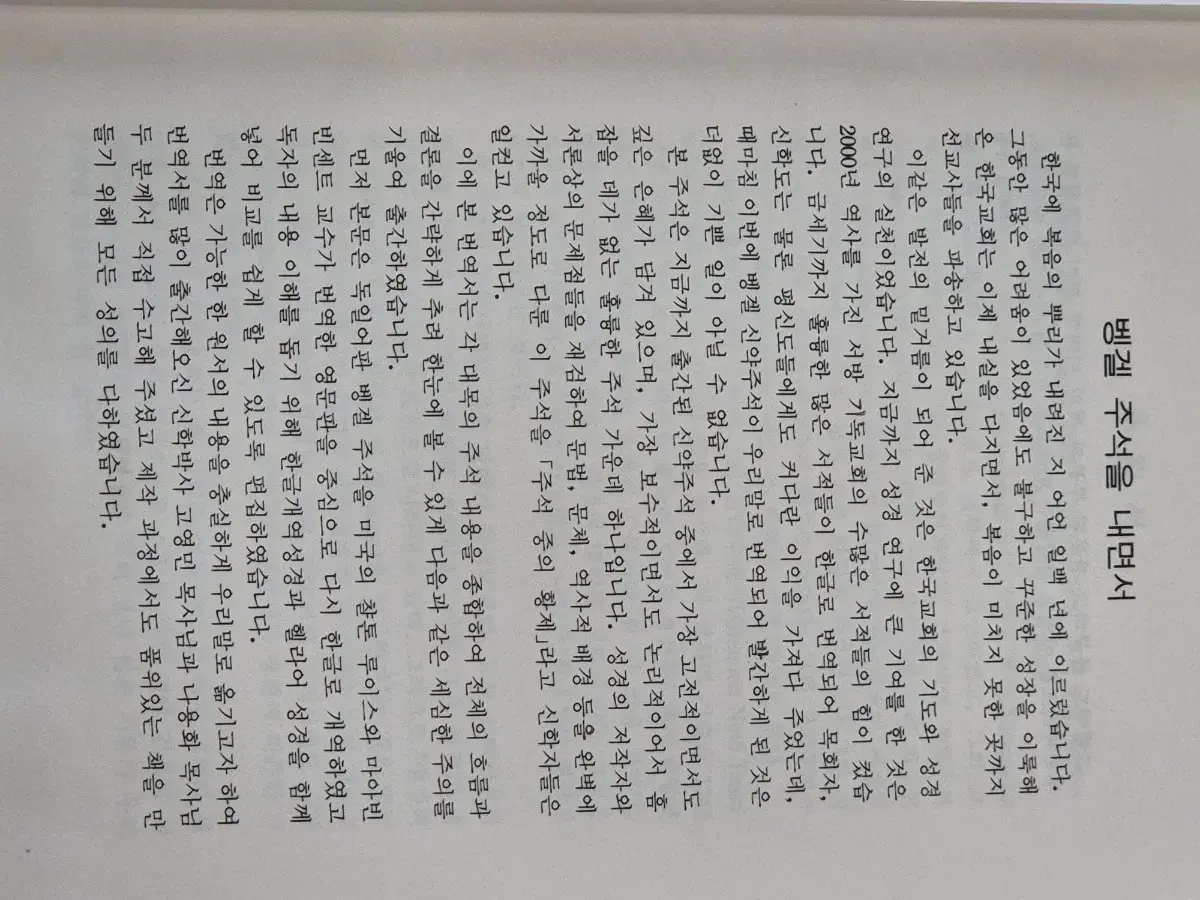 벵겔 주석을 내면서
한국에 복음의 뿌리가 내려진 지 어언 일백 년에 이르렀습니다.
그동안 많은 어려움이 있었음에도 불구하고 꾸준한 성장을 이룩해
온 한국교회는 이제 내실을 다지면서, 복음이 미치지 못한 곳까지
선교사들을 파송하고 있습니다.
이같은 발전의 밑거름이 되어 준 것은 한국교회의 기도와 성경
연구의 실천이었습니다. 지금까지 성경 연구에 큰 기여를 한 것은
2000년 역사를 가진 서방 기독교회의 수많은 서적들의 힘이 컸습
니다. 금세기까지 훌륭한 많은 서적들이 한글로 번역되어 목회자,
신학도는 물론 평신도들에게도 커다란 이익을 가져다 주었는데,
때마침 이번에 벵겔 신약주석이 우리말로 번역되어 발간하게 된 것은
더없이 기쁜 일이 아닐 수 없습니다.
본 주석은 지금까지 출간된 신약주석 중에서 가장 고전적이면서도
깊은 은혜가 담겨 있으며, 가장 보수적이면서도 논리적이어서 흠
잡을 데가 없는 훌륭한 주석 가운데 하나입니다. 성경의 저작자와
서론상의 문제점들을 재검하여 문법, 문체, 역사적 배경 등을 완벽에
가까울 정도로 다룬 이 주석을 「주석 중의 황제」라고 신학자들은
일컫고 있습니다.
이에 본 번역서는 각 대목의 주석 내용을 종합하여 전체의 흐름과
결론을 간략하게 추려 한눈에 볼 수 있게 다음과 같은 세심한 주의를
기울여 출간하였습니다.
먼저 본문은 독일어판 벵겔 주석을 미국의 찰톤 루이스와 마아빈
빈센트 교수가 번역한 영문판을 중심으로 다시 한글로 개역하였고
독자의 내용 이해를 돕기 위해 한글개역성경과 헬라어 성경을 함께
넣어 비교를 쉽게 할 수 있도록 편집하였습니다.
번역은 가능한 한 원서의 내용을 충실하게 우리말로 옮기고자 하여
번역서를 많이 출간해오신 신학박사 고영민 목사님과 나용화 목사님
두 분께서 직접 수고해 주셨고 제작 과정에서도 품위있는 책을 만
들기 위해 모든 성의를 다하였습니다.